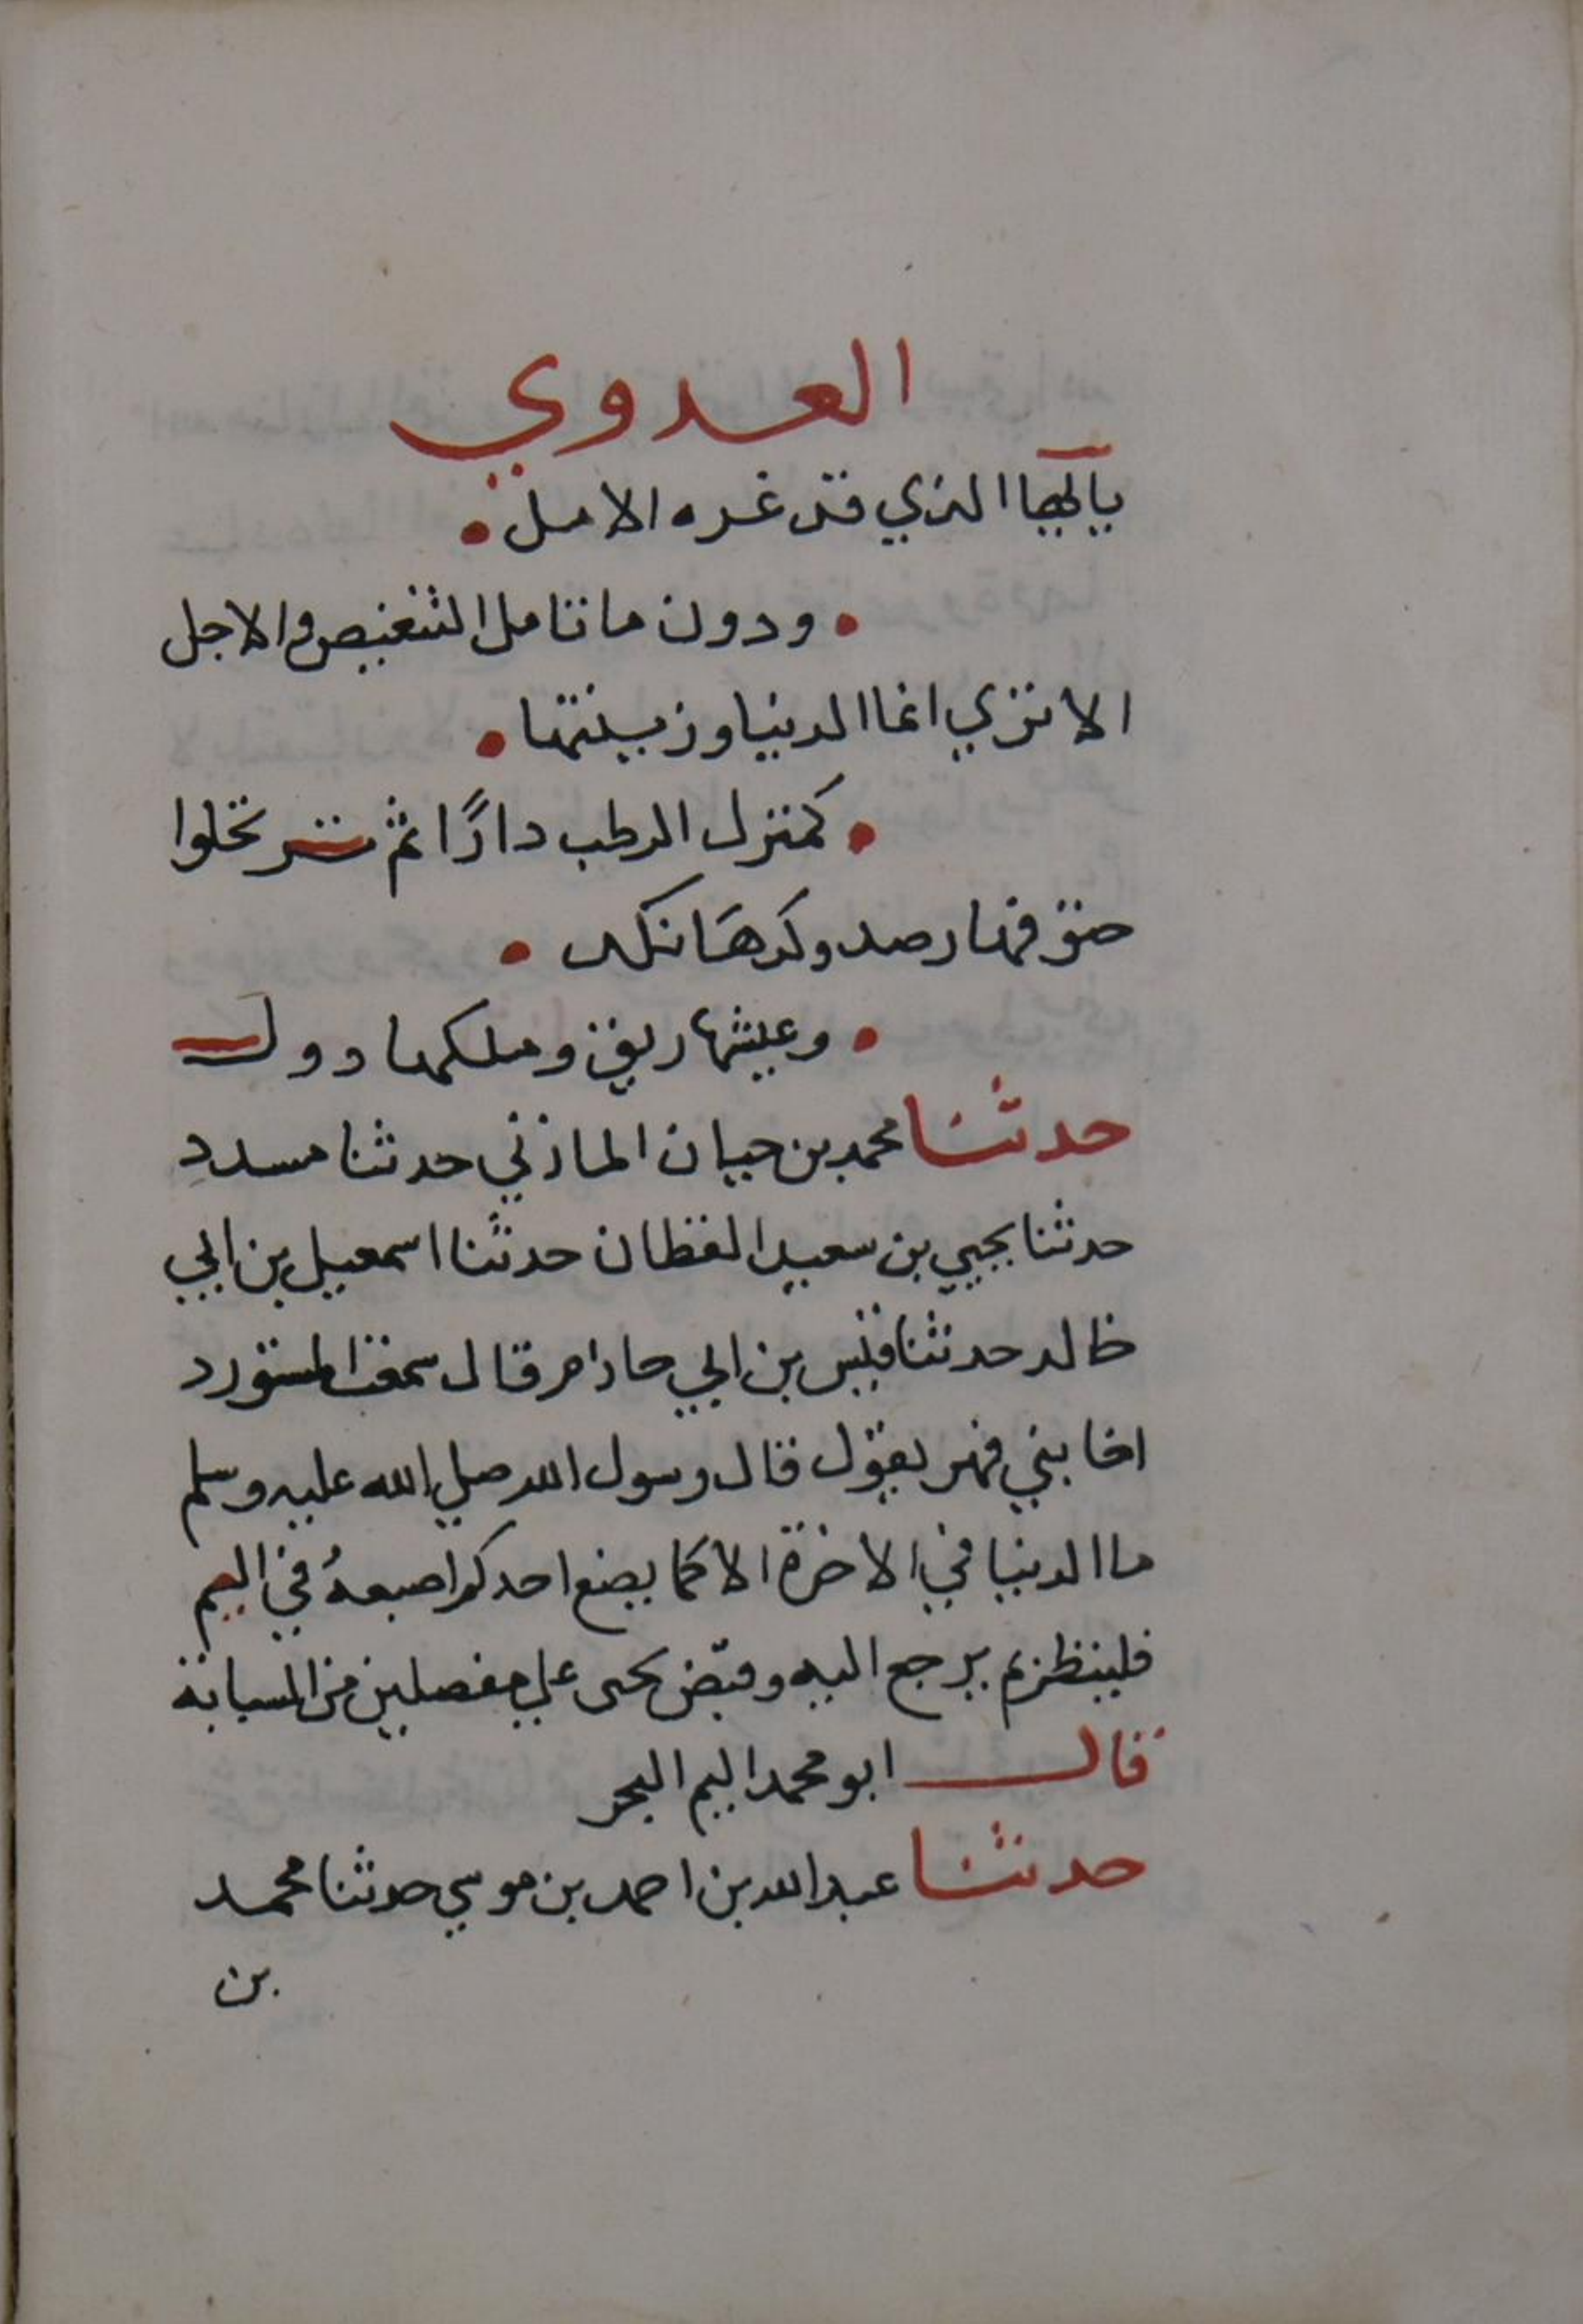 العدوي
ياايها الذي قد غره الامل
ودون ما تامل التنغيص والاجل
الا تري انما الدنيا وزينتها
كمنزل الركب دارًا ثم ترتحلوا
رصد وكدها نكد
وعيشها ريق وملكها دول
حدثنا محمد بن حيان المازني حدثنا مسدد
حدثنا يحيي بن سعيد القطان حدثنا اسمعيل بن ابي
خالد حدثنا قيس بن ابي حازم قال سمعت المستورد
اخا بني فهر يقول قال رسول الله صلي الله عليه وسلم
ما الدنيا في الاخرة الا كما يضع احدكم اصبعهُ في اليم
فلينظر بم يرجع اليه وقبض يحيى علي مفصلين من السبابة
قال ابو محمد اليم البحر
حدثنا عبد الله بن احمد بن موسي حدثنا محمد
بن